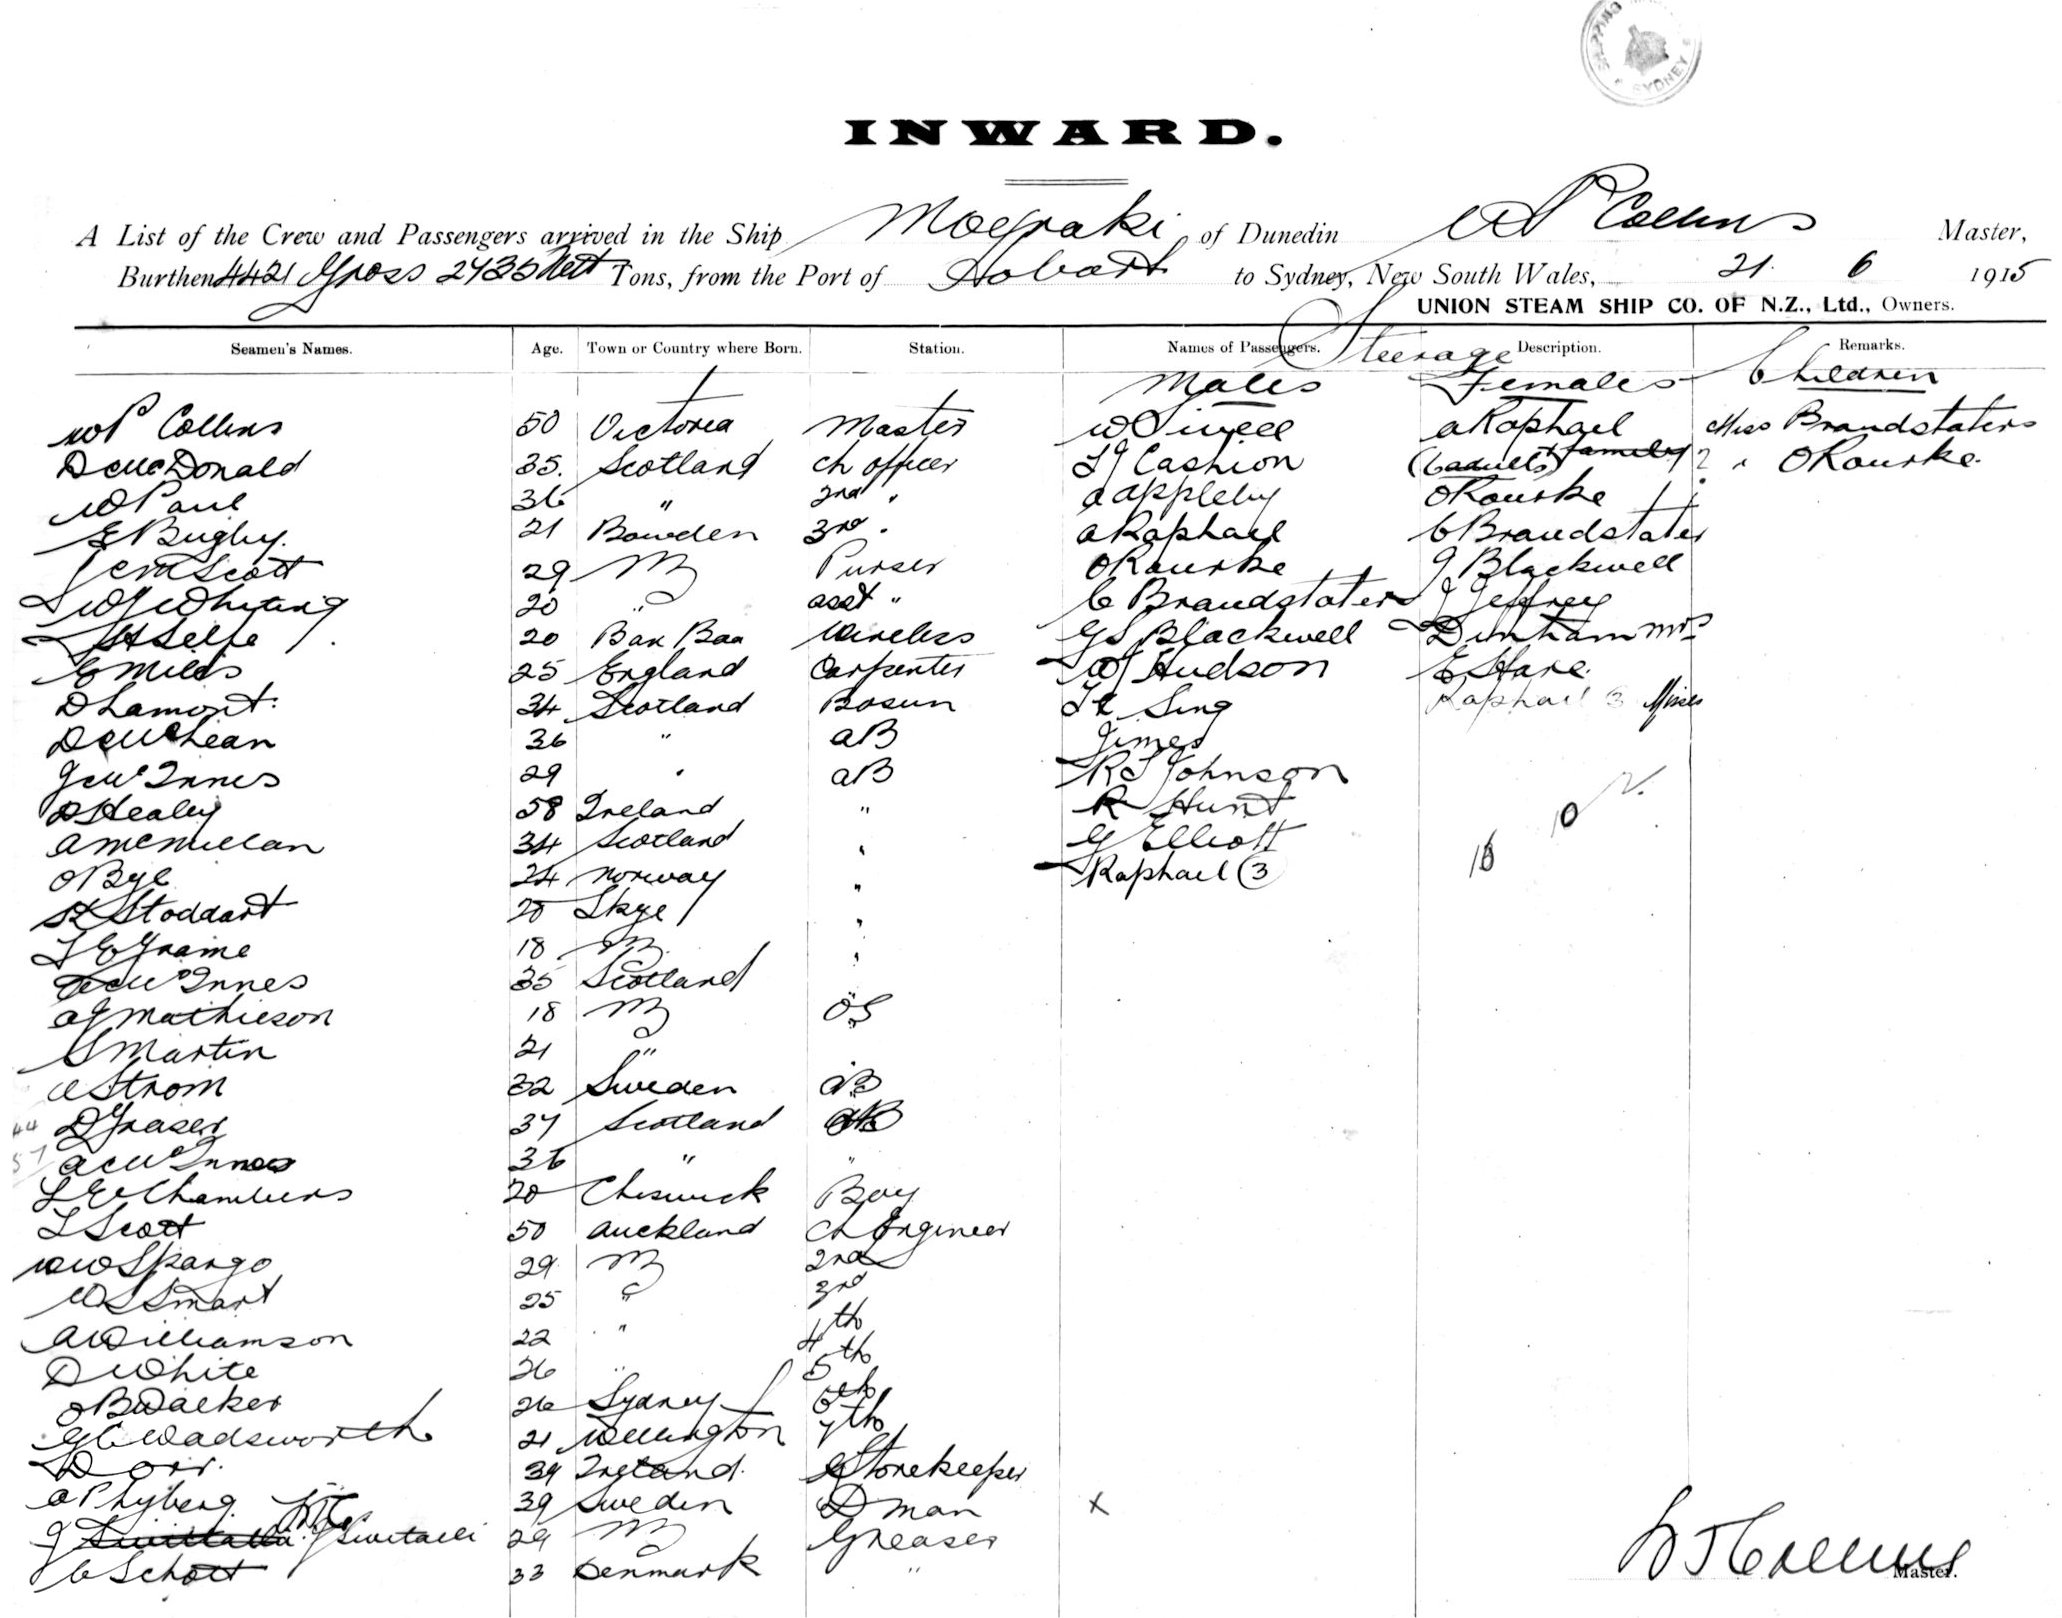 SHIPPING SYDNEY
INWARD.
A List of the Crew and Passengers arrived in the Ship Moeraki of Dunedin W P Collins Master,
Burthen 4421 Gross 2735 Nett Tons, from the Port of Hobart to Sydney, New South Wales, 21. 6 1915
UNION STEAM SHIP CO. OF N.Z., Ltd., Owners.
Seamen's Names. Age. Town or Country where Born. Station. Names of Passengers. Steerage Description. Remarks.
Males Females Children
W P Collins 50 Victoria Master W Sivell A Raphael Miss Brandstaters
D McDonald 35. Scotland Ch Officer T J Cashion (6 adults) + family 2 " O Rourke.
W Paul 36 " 2nd " A Appleby O Rourke
E Bugby. 21 Bowden 3rd " A Raphael C Brandstater
J C M Scott 29 NZ Purser O Rourke J Blackwell
W J Whiting 20 " asst " C Brandstater J Jeffrey
H Selfe 20 Bax Baa Wireless G S Blackwell Dunham Mrs
C Mills 25 England Carpenter W J Hudson E Hare.
D Lamont. 34 Scotland Bosun Sing Raphael 3 Misses
D McLean 36 " AB Jimes
J McInnes 29 " AB R S Johnson
D Healey 58 Ireland " R Hunt 10
A McMillan 34 Scotland " G Elliott 16
O Bye 24 Norway " Raphael (3)
Stoddart 20 Skye "
L C Grame 18 NZ "
McInnes 35 Scotland "
A J Mathieson 18 NZ OS
S Martin 21 " "
A Strom 32 Sweden AB
44 D Fraser 37 Scotland AB
57 A McInnes 36 " "
L E Chambers 20 Chiswick Boy
L Scott 50 Auckland Ch Engineer
W W Spargo 29 NZ 2nd
W S Smart 25 " 3rd
A Williamson 22 " 4th
D White 26 " 5th
O B Walker 26 Sydney 6th
G C Wadsworth 21 Wellington 7th
D Orr. 39 Ireland. Storekeeper
A P Nyberg 39 Sweden D man x
J Switalli 29 NZ Greaser
C Schott 33 Denmark "
W P Collins
Master.